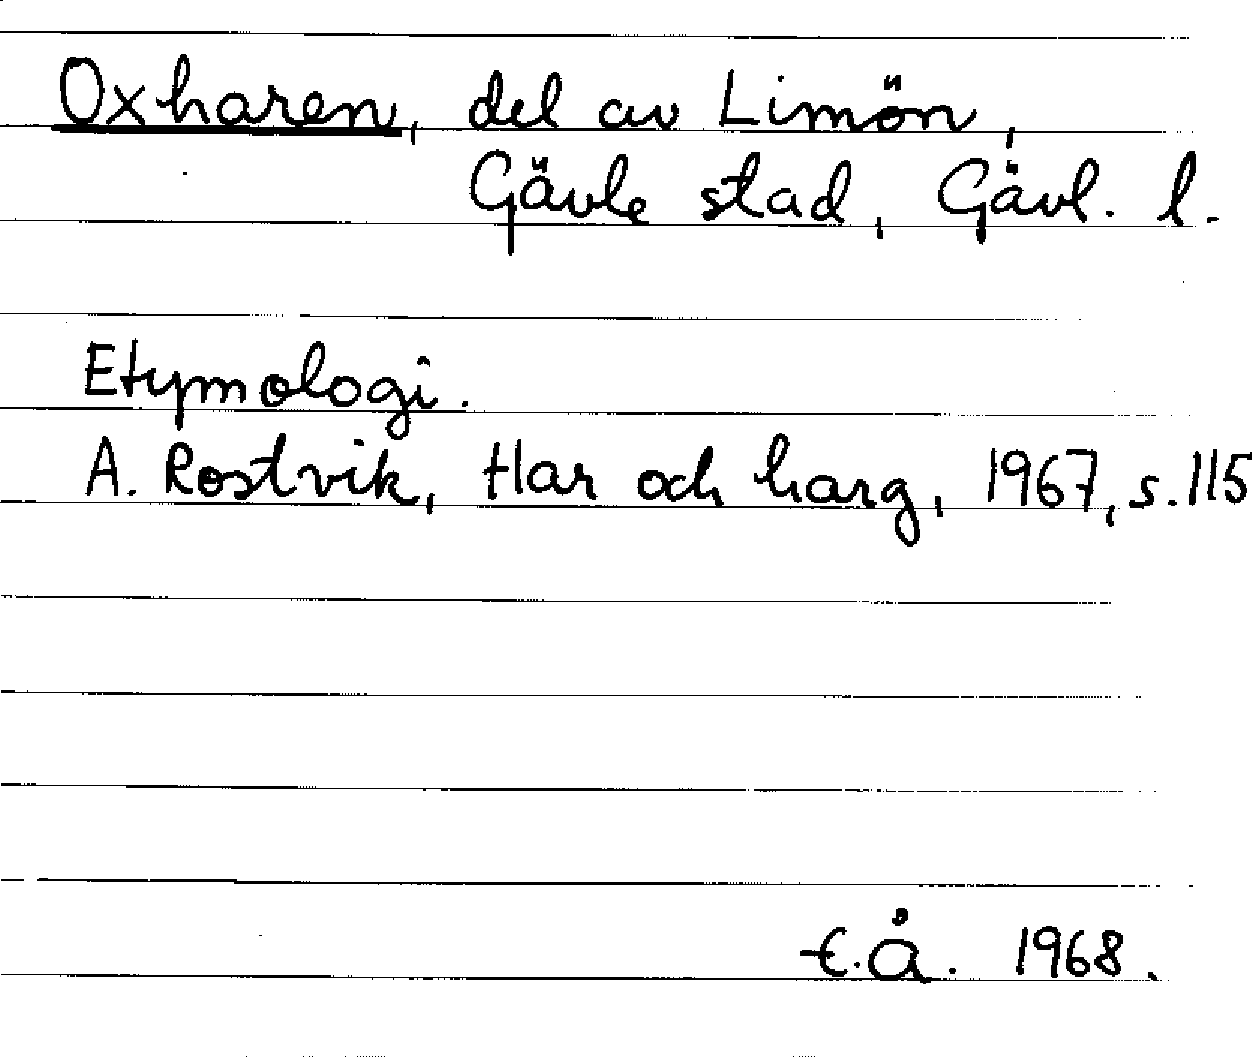 Oxharen, del av Limön,
Gävle stad, Gävl. l.
Etymologi.
A. Rostvik, Har och harg, 1967, s. 115
1968.